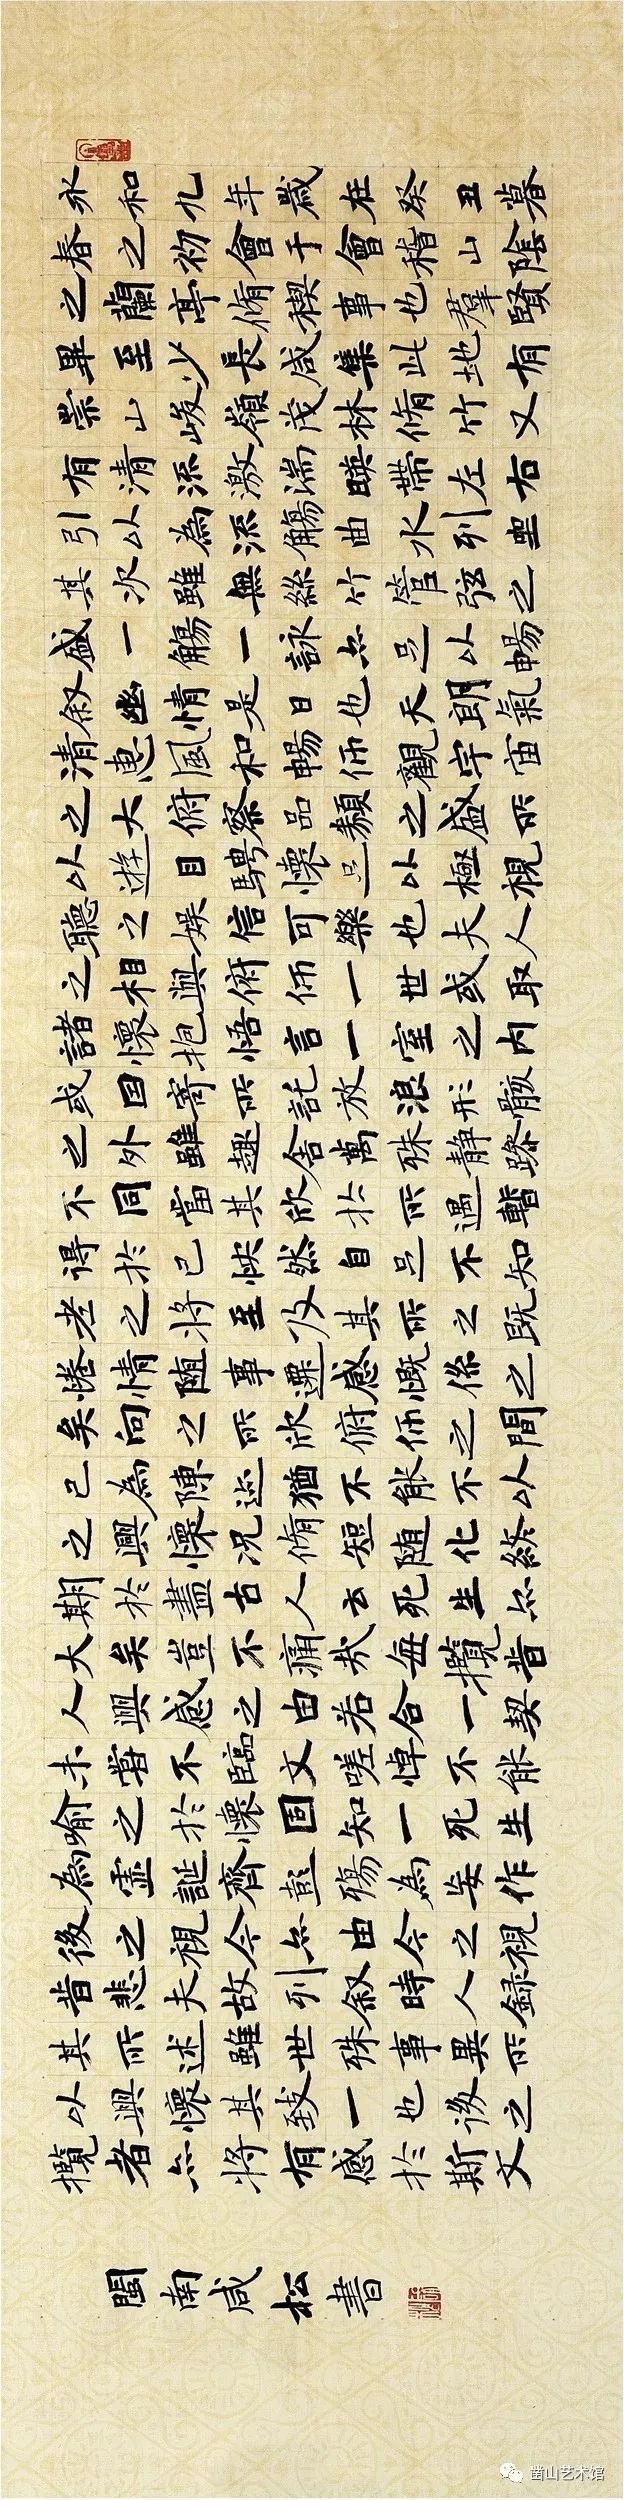 永和九年歲在癸丑暮
春之初會于會稽山陰
之蘭亭脩禊事也羣賢
畢至少長咸集此地有
崇山峻嶺茂林脩竹又
有清流激湍暎帶左右
引以為流觴曲水列坐
其次雖無絲竹管弦之
盛一觴一詠亦足以暢
叙幽情是日也天朗氣
清惠風和暢仰觀宇宙
之大俯察品類之盛所
以遊目騁懷足以極視
聽之娛信可樂也夫人
之相與俯仰一世或取
諸懷抱悟言一室之内
或因寄所託放浪形骸
之外雖趣舍萬殊静躁
不同當其欣於所遇暫
得於己怏然自足不知
老之將至及其所之既
惓情随事遷感慨係之
矣向之所欣俯仰之間
已為陳迹猶不能不以
之興懷況脩短随化終
期於盡古人云死生亦
大矣豈不痛哉每攬昔
人興感之由若合一契
未嘗不臨文嗟悼不能
喻之於懷固知一死生
為虛誕齊彭殤為妄作
後之視今亦由今之視
昔悲夫故列叙時人録
其所述雖世殊事異所
以興懷其致一也後之
攬者亦將有感於斯文
閩南咸松書
凿山艺术馆